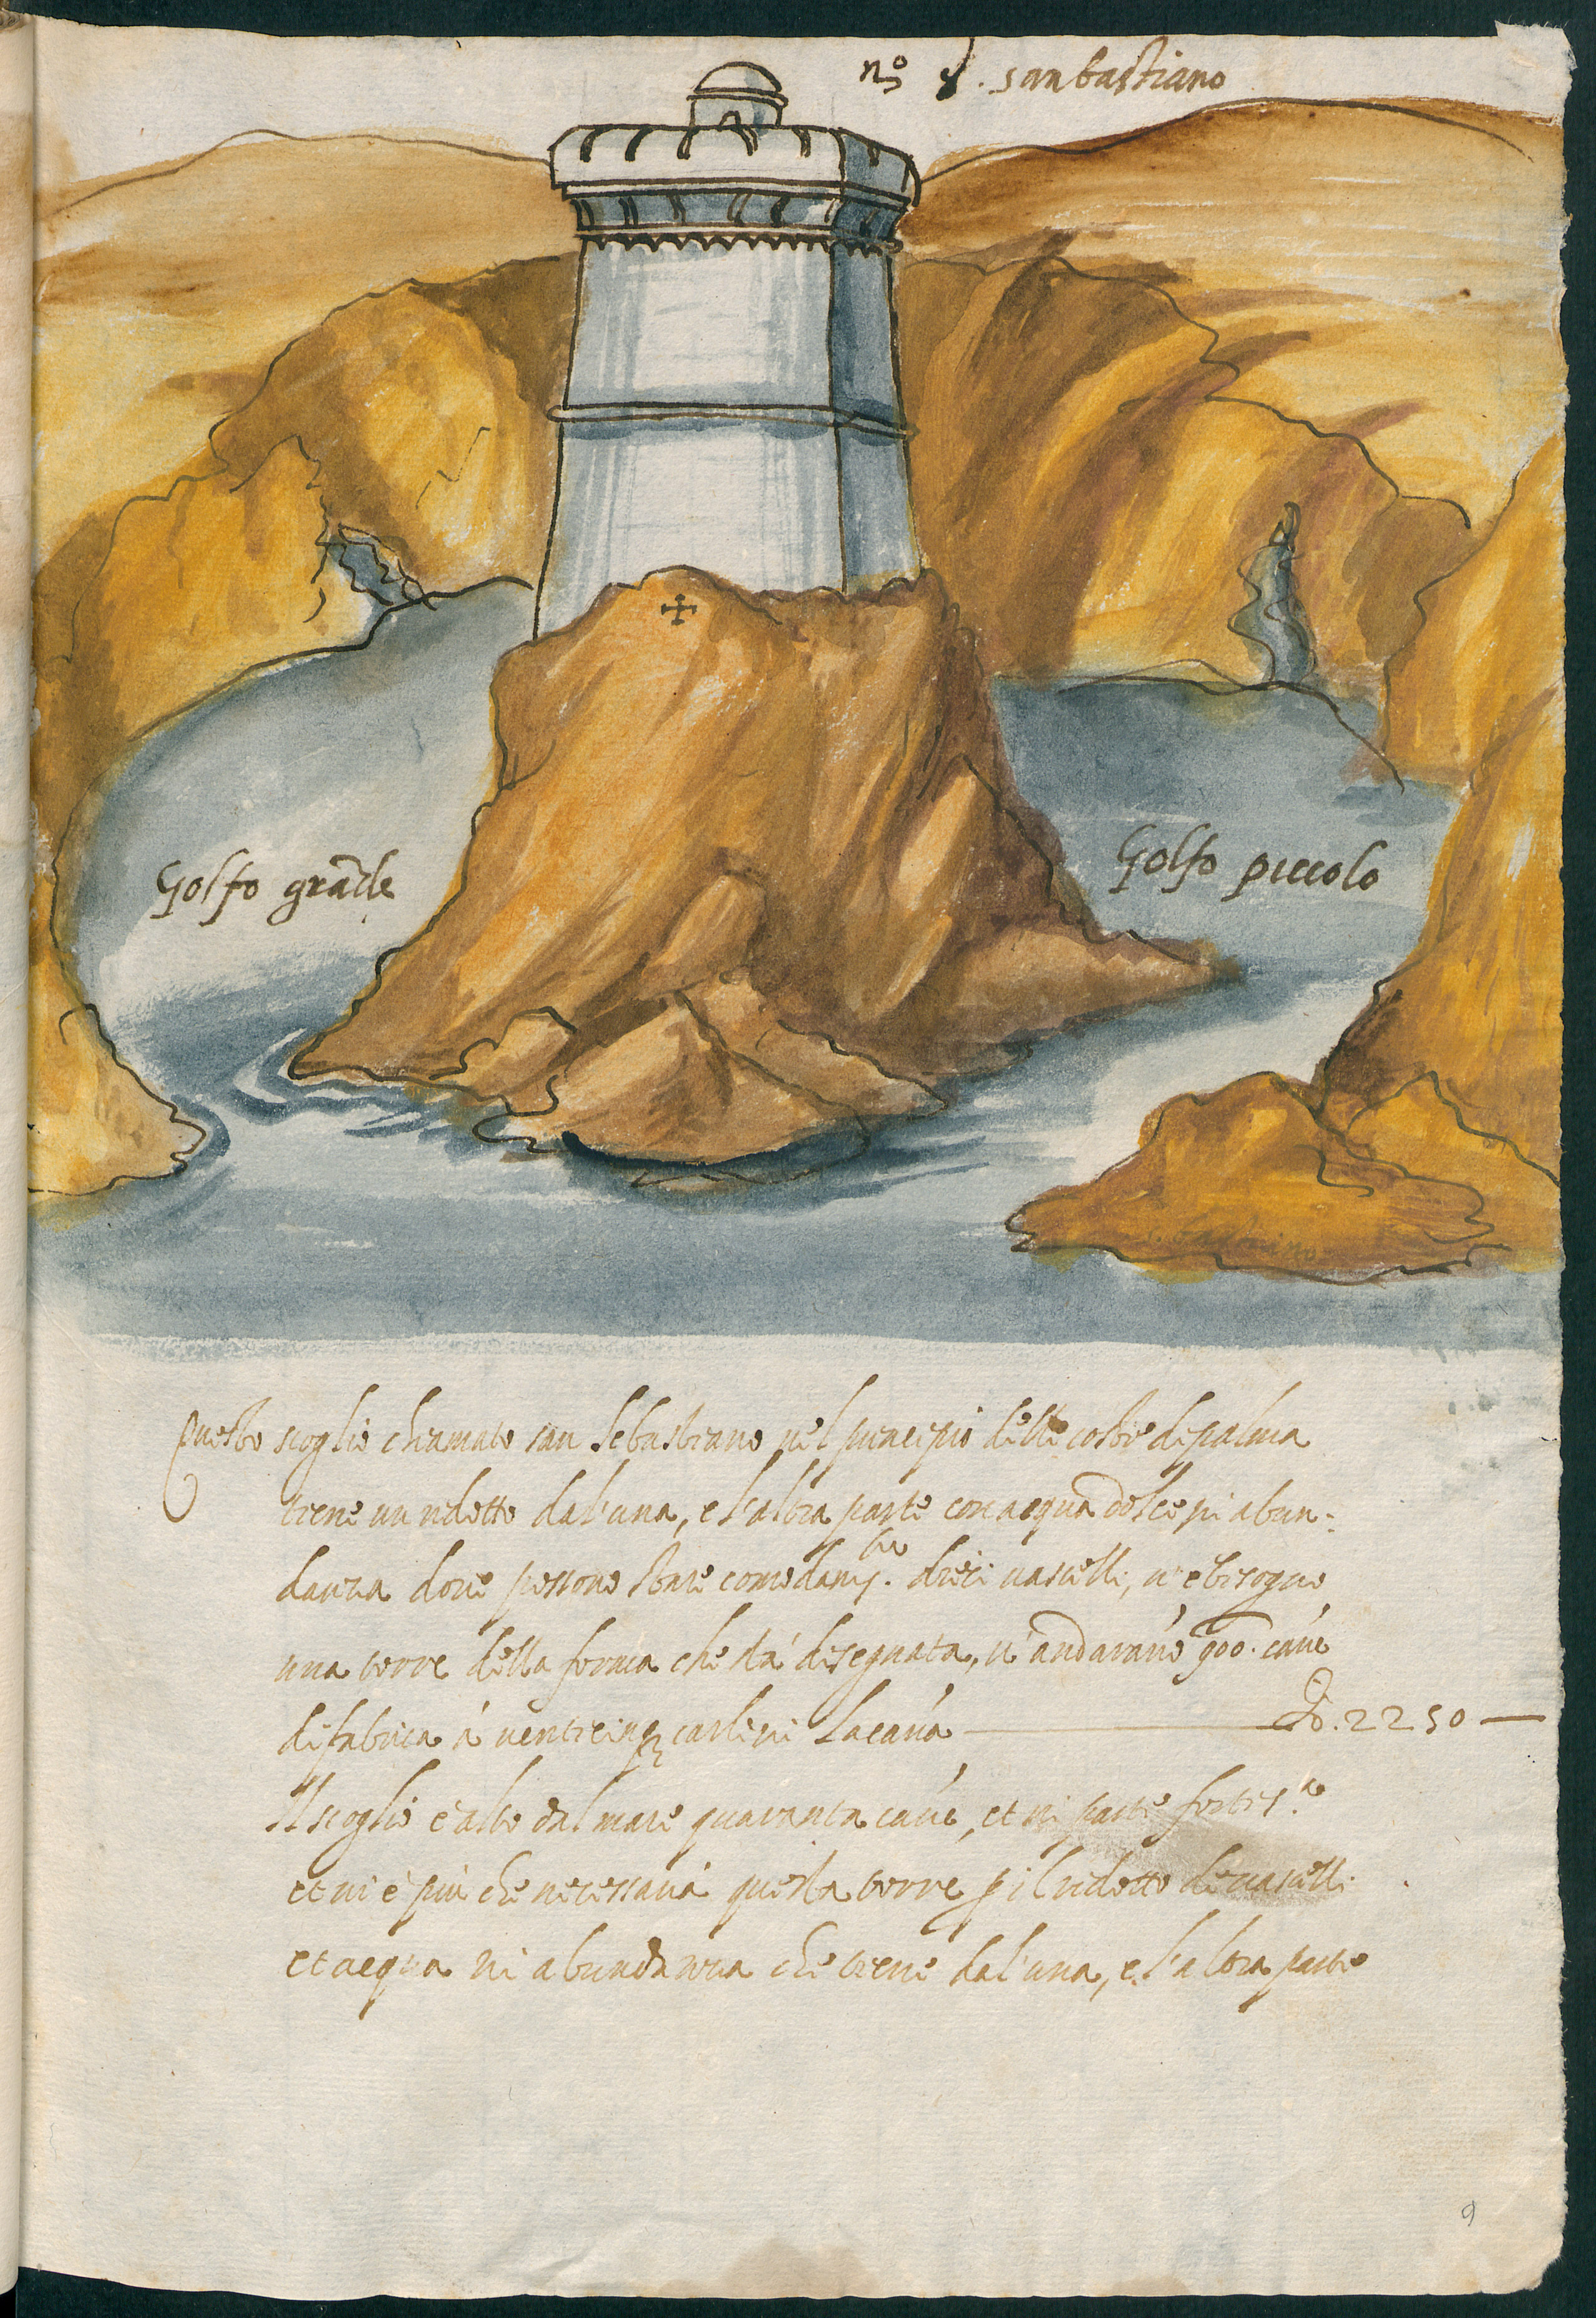 nº 8. san bastiano
Golfo grãde
Golfo piccolo
Questo scoglio chiamato san Sebastiano nel principio delle coste di palma
tiene un ridotto dal'una, e l'altra parte con acqua dolce in abun-
danza dove possono stare comodam.te dieci vascelli, vi è bisogno
una torre della forma che sta' disegnata, vi andaranno 900. canne
di fabrica à venticinq; carlini la canna D. 2250
Il scoglio è alto dal mare quaranta canne, et in parte fortiss.a
et vi è più che necessaria questa torre p il ridotto de vascelli
et acqua in abundanza che tiene dal'una, e l'altra parte
9